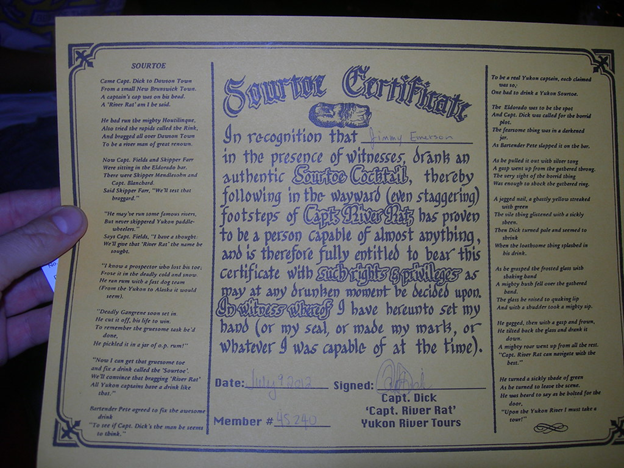 SOURTOE
Come Capt. Dick to Dawson Town
From a small New Brunswick Town.
A captain's cap was on his head.
A 'River Rat' am I he said.
He had run the mighty Hootilinqua,
Also tried the rapids called the Rink,
And bragged all over Dawson Town
To be a river man of great renown.
Now Capt. Fields and Skipper Farr
Were sitting in the Eldorado bar.
There were Skipper Mendlesohn and
Capt. Blanchard.
Said Skipper Farr, "We'll test that
braggard."
"He may've run some famous rivers,
But never skippered Yukon paddle-
wheelers."
Says Capt. Fields, "I have a thought;
We'll give that 'River Rat' the name he
sought.
"I know a prospector who lost his toe,
Froze it in the deadly cold and snow.
He ran rum with a fast dog team
(From the Yukon to Alaska it would
seem).
"Deadly Gangrene soon set in.
He cut it off, his life to win.
To remember the gruesome task he'd
done,
He pickled it in a jar of o.p. rum!"
"Now I can get that gruesome toe
and fix a drink called the 'Sourtoe'.
We'll convince that bragging 'River Rat'
All Yukon captains have a drink like
that."
Bartender Pete agreed to fix the awesome
drink
"To see if Capt. Dick's the man he seems
to think."
Sourtoe Certificate
In recognition that Jimmy Emerson
in the presence of witnesses, drank an
authentic Sourtoe Cocktail, thereby
following in the wayward (even staggering)
footsteps of Capt. River Rat, has proven
to be a person capable of almost anything,
and is therefore fully entitled to bear this
certificate with such rights & privileges as
may at any drunken moment be decided upon.
In witness whereof I have hereunto set my
hand (or my seal, or made my mark, or
whatever I was capable of at the time).
Date: July 9 2012 Signed:
Capt. Dick
'Capt. River Rat'
Member # 45,240 Yukon River Tours
To be a real Yukon captain, each claimed
was to;
One had to drink a Yukon Sourtoe.
The Eldorado was to be the spot
And Capt. Dick was called for the horrid
plot.
The fearsome thing was in a darkened
jar.
As Bartender Pete slapped it on the bar.
As he pulled it out with silver tong
A gasp went up from the gathered throng.
The very sight of the horrid thing
Was enough to shock the gathered ring.
A jagged nail, a ghastly yellow streaked
with green
The vile thing glistened with a sickly
sheen.
Then Dick turned pale and seemed to
shrink
When the loathsome thing splashed in
his drink.
As he grasped the frosted glass with
shaking hand
A mighty hush fell over the gathered
band.
The glass he raised to quaking lip
And with a shudder took a mighty sip.
He gagged, then with a gasp and frown,
He tilted back the glass and drank it
down.
A mighty roar went up from all the rest.
"Capt. River Rat can navigate with the
best."
He turned a sickly shade of green
As he turned to leave the scene.
He was heard to say as he bolted for the
door,
"Upon the Yukon River I must take a
tour!"